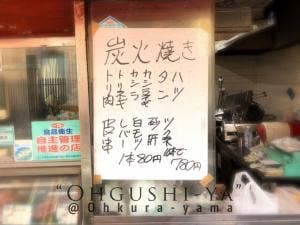 炭火焼き
ハツ
タン
カシラ
トリ肉
ツクネ
砂肝
白モツ
レバー
皮串
1本80円
780円
食品衛生
自主管理
推進の店
"OHGUSHI-YA"
@Ohkura-yama